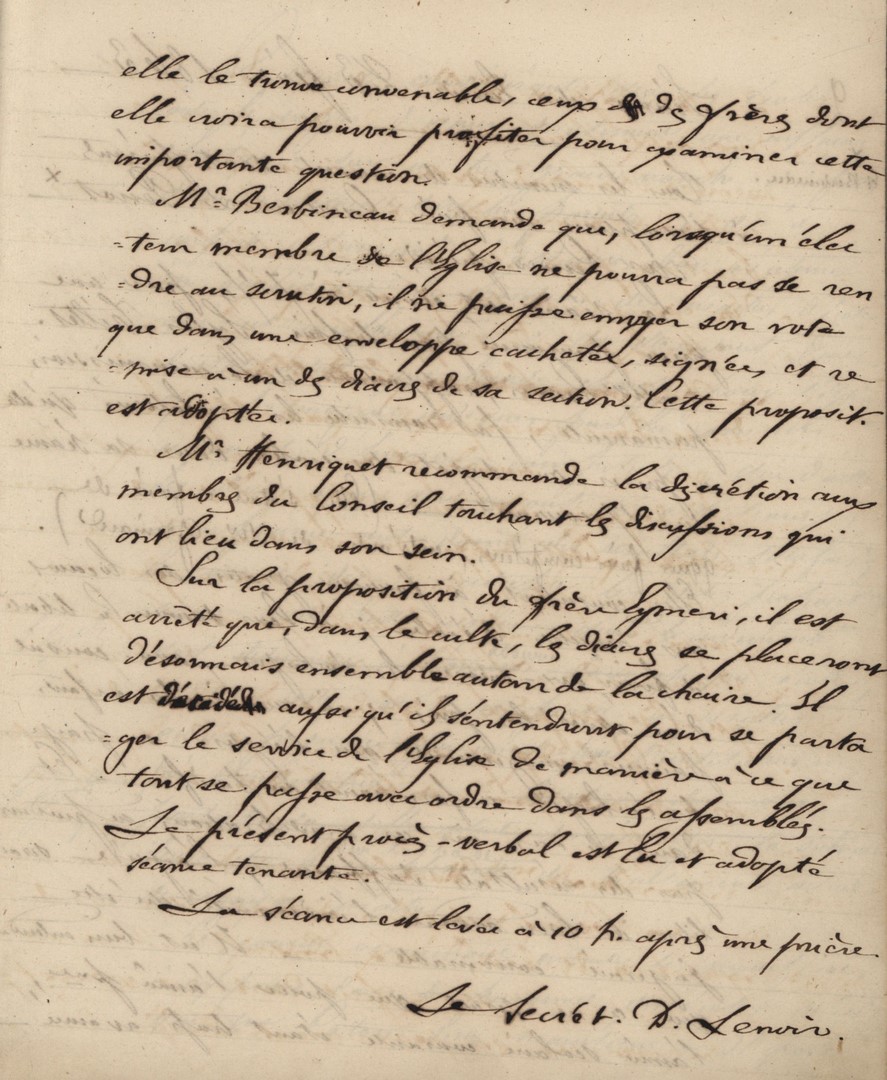 elle le trouve convenable, ceux des frères dont
elle croira pouvoir profiter pour examiner cette
importante question.
Mr. Berbineau demande que, lorsqu'un élec
-teur membre de l'Eglise ne pourra pas se ren
-dre au scrutin, il ne puisse envoyer son vote
que dans une enveloppe cachetée, signée, et re
-mise à un des diacres de sa section. Cette proposit.
est adoptée.
Mr. Henriquet recommande la discrétion aux
membres du Conseil touchant les discussions qui
ont lieu dans son sein.
Sur la proposition du frère Eymeri, il est
arrêté que, dans le culte, les diacres se placeront
désormais ensemble autour de la chaire. Il
est décidé aussi qu'ils s'entendront pour se parta
-ger le service de l'Eglise de manière à ce que
tout se passe avec ordre dans les assemblés.
Le présent procès-verbal est lu et adopté
séance tenante.
La séance est levée à 10 h. après une prière.
Le Secrét. D. Lenoir.